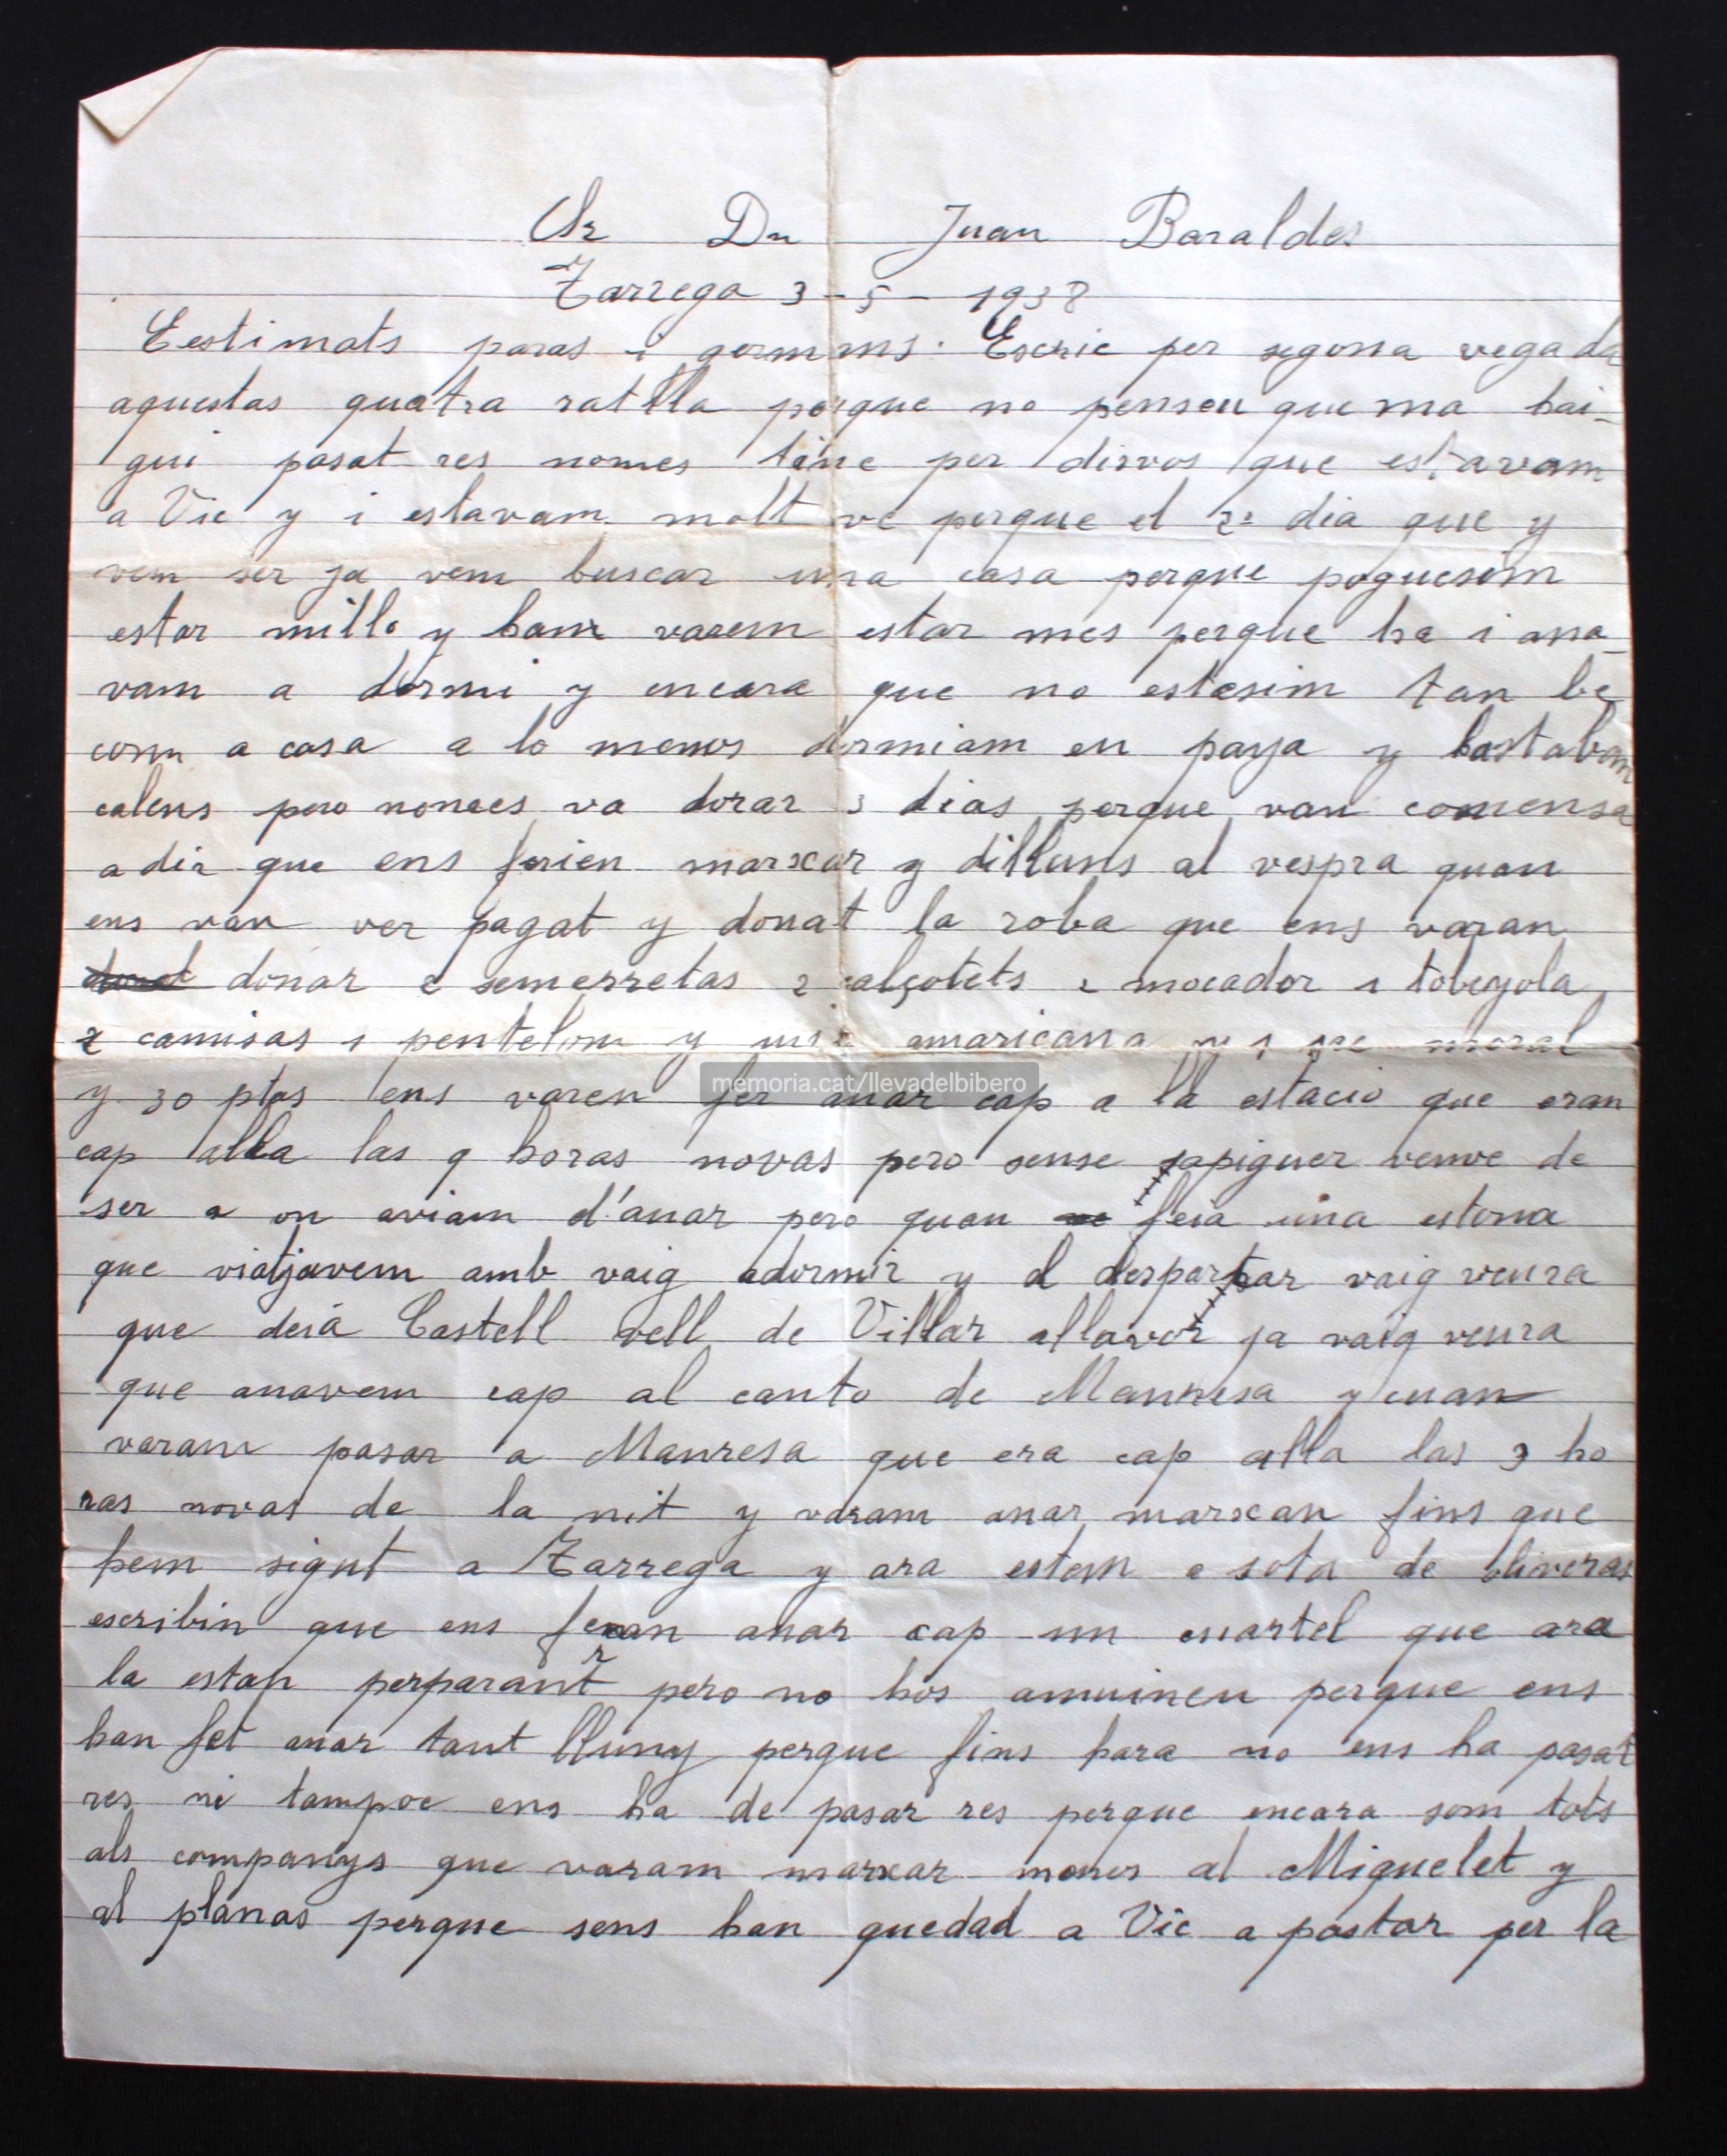 Sr Dn Juan Baraldes
Tarrega 3-5-1938
Eestimats paras i germans. Escric per segona vegada
aquestas quatra ratlla perque no penseu que ma hai-
gui pasat res nomes tinc per dirvos que estavam
a Vic y i estavam molt ve perque el 2º dia que y
vem ser ja vem buscar una casa perque poguesim
estar millo y ham varem estar mes perque ha i ana-
vam a dormi y encara que no estesim tan be
com a casa a lo menos dormiam en paya y hastabam
calens pero nomes va dorar 3 dias perque van comensa
a dir que ens ferien marxar y dilluns al vespra quan
ens van ver pagat y donat la roba que ens varan
donat donar 2 semerretas 2 calçotets 2 mocador 1 tobeyola
2 camisas 1 pentelom y una amaricana y 1 sac moral
y 30 ptas ens varen fer anar cap a la estacio que eran
cap alla las 9 horas novas pero sense sapiguer venve de
ser a on aviam d'anar pero quan feia una estona
que viatjavem amb vaig adormir y al despartar vaig veura
que deia Castell vell de Villar allavor ja vaig veura
que anavem cap al canto de Manresa y cuan
varam pasar a Manresa que era cap alla las 3 ho
ras novas de la nit y varam anar marxan fins que
hem sigut a Tarrega y ara estem a sota de oliveras
escribin que ens feran anar cap un cuartel que ara
la estan perparant pero no hos amuineu perque ens
han fet anar tant lluny perque fins hara no ens ha pasat
res ni tampoc ens ha de pasar res perque encara som tots
als companys que varam marxar menos al Miquelet y
al planas perque sens han quedad a Vic a pastar per la
memoria.cat/llevadelbibero